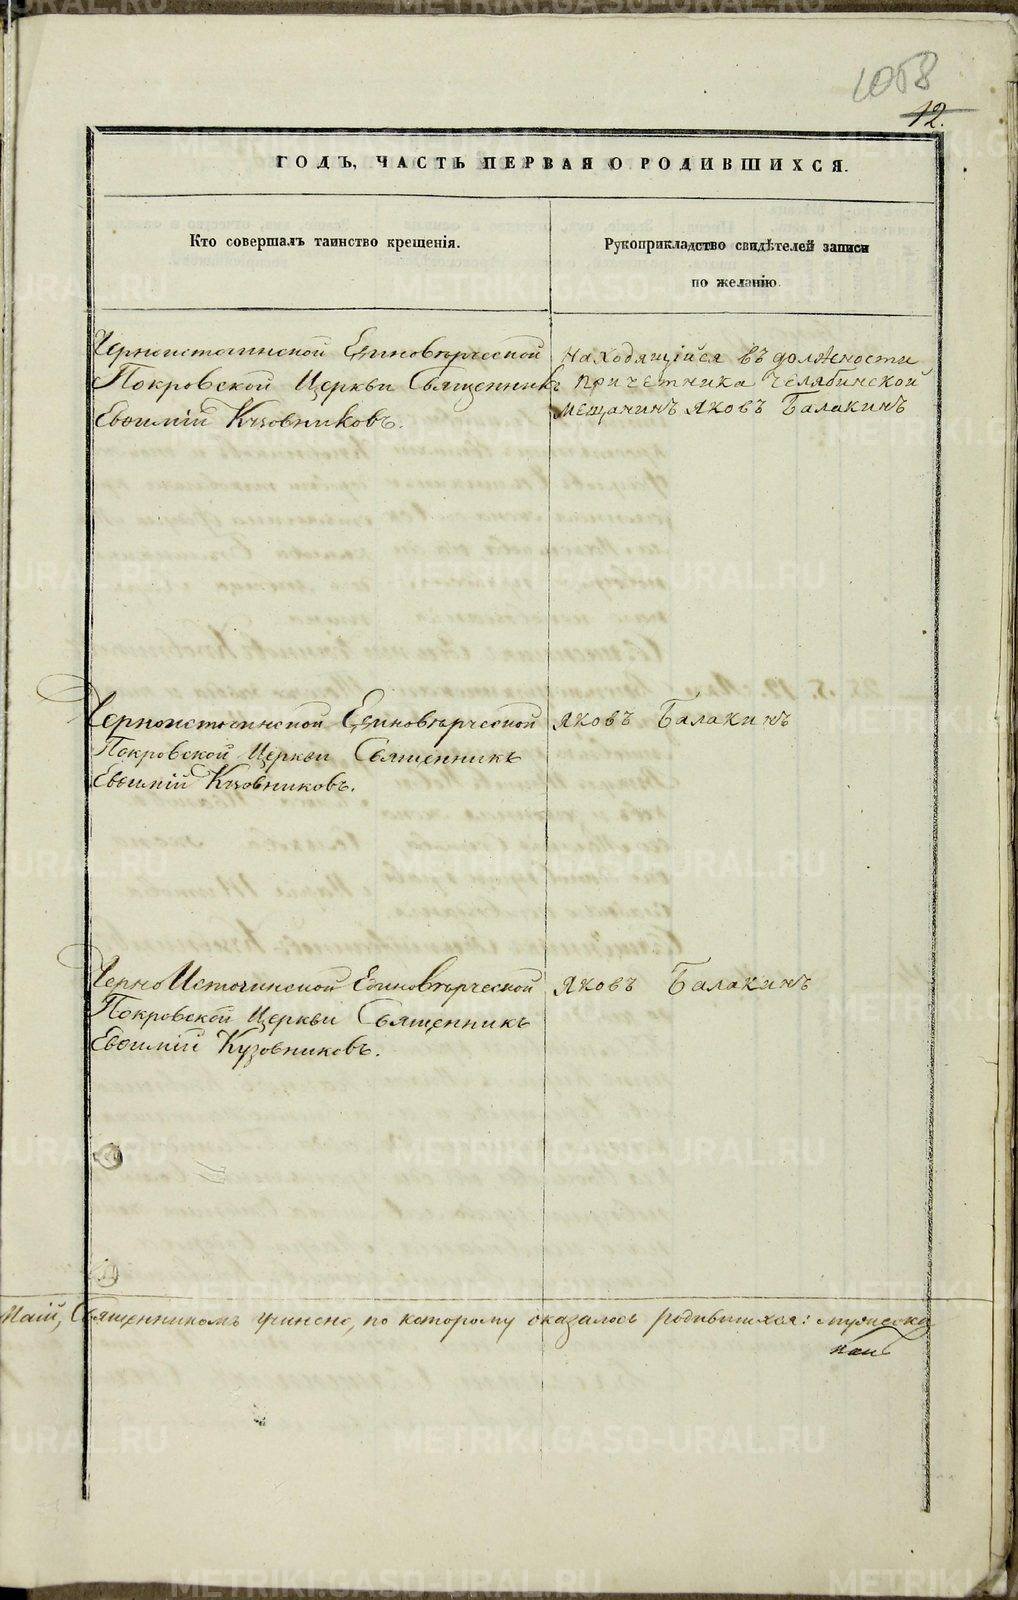 1058
12.
ГОДЪ, ЧАСТЬ ПЕРВАЯ О РОДИВШИХСЯ.
Кто совершалъ таинство крещенія.
Рукоприкладство свидѣтелей записи
по желанію.
Черноисточинской Единовѣрческой
Покровской Церкви Священникъ
Евѳимій Кузовниковъ.
Находящійся въ должности
причетника Челябинской
мещанинъ Яковъ Балакинъ
Черноисточинской Единовѣрческой
Покровской Церкви Священникъ
Евѳимій Кузовниковъ.
Яковъ Балакинъ
ЧерноИсточинской Единовѣрческой
Покровской Церкви Священникъ
Евѳимій Кузовниковъ.
Яковъ Балакинъ
Маій, Священникомъ учинено, по которому оказалось родившихся: мужеска
METRIKI.GASO-URAL.RU